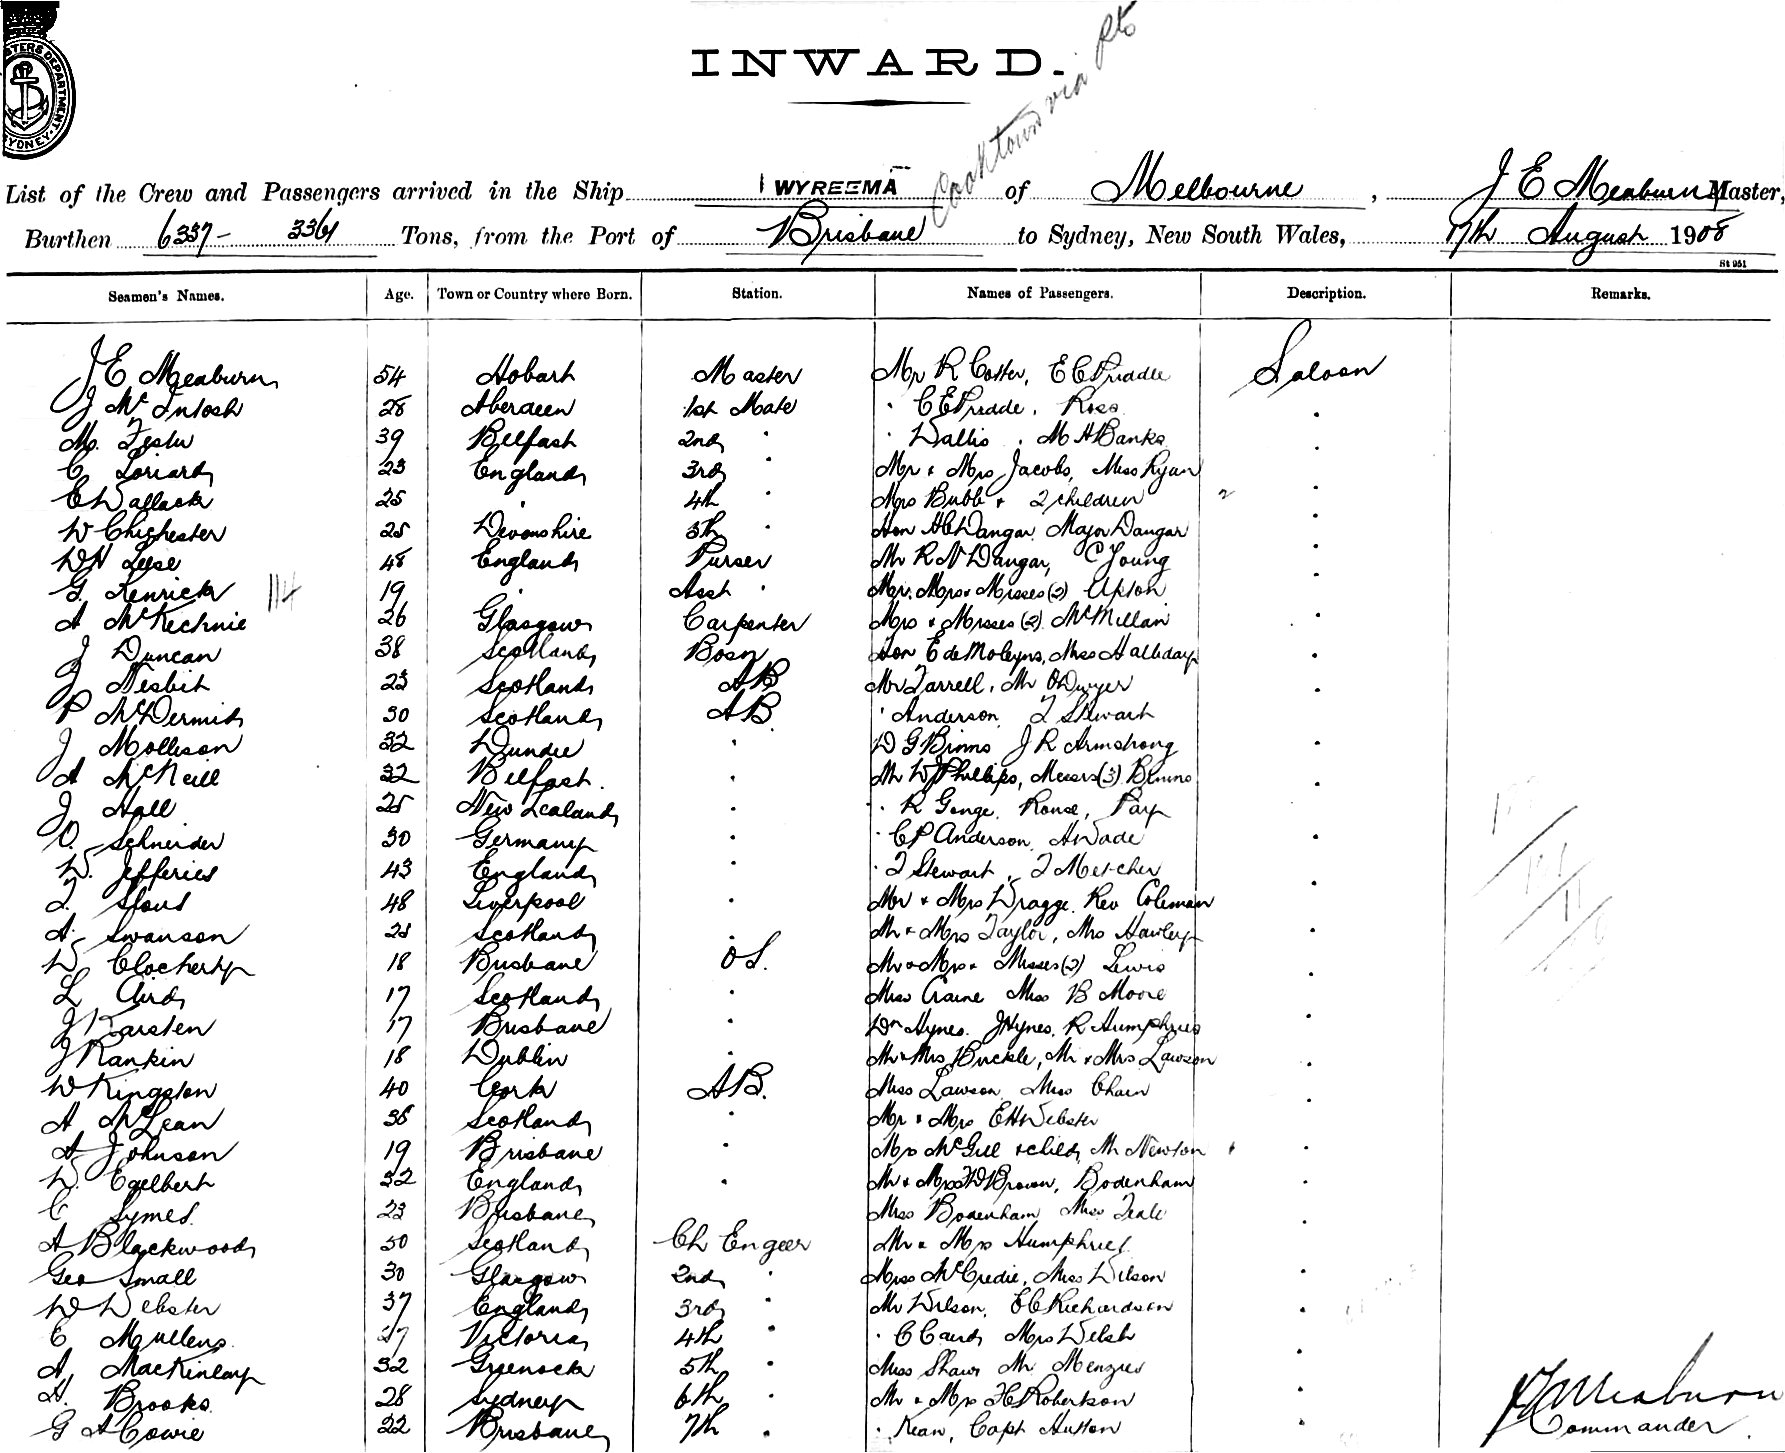 INWARD.
Cooktown via pts
List of the Crew and Passengers arrived in the Ship WYREEMA of Melbourne, J E Meaburn Master,
Burthen 6337- 3361 Tons, from the Port of Brisbane to Sydney, New South Wales, 17th August 1908
St 951
Seamen's Names. Age. Town or Country where Born. Station. Names of Passengers. Description. Remarks.
J E Meaburn 54 Hobart Master Mr R Cotter, E C Priddle Saloon
J McIntosh 28 Aberdeen 1st Mate " C E Pridde, Ross "
M. 39 Belfast 2nd " " Wallis, M H Banks "
C Loriard 23 England 3rd " Mr & Mrs Jacobs, Miss Ryan "
E Wallack 25 " 4th " Mrs Bubb & 2 children 2 "
W Chichester 25 Devonshire 5th " Hon H C Dangar Major Dangar "
W H Leese 48 England Purser Mr R N Dangar, C Young "
G. Kenrick 114 19 " Asst " Mr. Mrs & Misses (2) Upton "
A McKechnie 26 Glasgow Carpenter Mrs & Misses (2) McMillan "
J Duncan 38 Scotland Bosn Hon E de Moleyns, Miss Halliday "
J Nesbit 23 Scotland AB Mr Farrell, Mr O'Dwyer "
P McDermid 30 Scotland AB " Anderson, F Stewart
J Mollison 32 Dundee " W G Binns J R Armstrong "
A McNeill 32 Belfast. " Mr W J Phillips, Messrs (3) Binns "
J Hall 25 New Zealand " " R Genge, Rouse, Pay
O. Schneider 30 Germany " " C P Anderson, H Wade "
W. Jefferies 43 England " " F Stewart, F Metcher
T. Slous 48 Liverpool " Mr & Mrs Wragge. Rev Coleman "
A. Swanson 28 Scotland " Mr & Mrs Taylor, Mrs Hawley "
W Clocherty 18 Brisbane OS. Mr & Mrs & Misses (2) Lewis "
L Aird 17 Scotland " Miss Craine Miss B Moore "
J Karsten 17 Brisbane " Dr Hynes. J Hynes, R Humphries "
J Rankin 18 Dublin " Mr & Mrs Buckle, Mr & Mrs Lawson "
W Kingston 40 Cork AB. Miss Lawson, Miss Chain "
A McLean 38 Scotland " Mr & Mrs E H Webster
A Johnson 19 Brisbane " Mrs McGill & child, Mr Newton 1 "
W. Egelbert 32 England " Mr & Mrs W Brown, Bodenham "
C Symes. 23 Brisbane Miss Bodenham Miss Teale "
A Blackwood 50 Scotland Ch Engeer Mr & Mrs Humphries "
Geo Small 30 Glasgow 2nd " Miss McCredie, Miss Wilson "
W Webster 37 England 3rd " Mr Wilson, E C Richardson "
C Mullens. 27 Victoria 4th " " C Caird, Mrs Welsh
A. MacKinlay 32 Greenock 5th " Miss Shaw Mr Menzies "
H. Brooks. 28 Sydney 6th " Mr & Mrs H C Robertson "
G A Cowie 22 Brisbane 7th " " Kean, Capt Hutton "
J E Meaburn
Commander